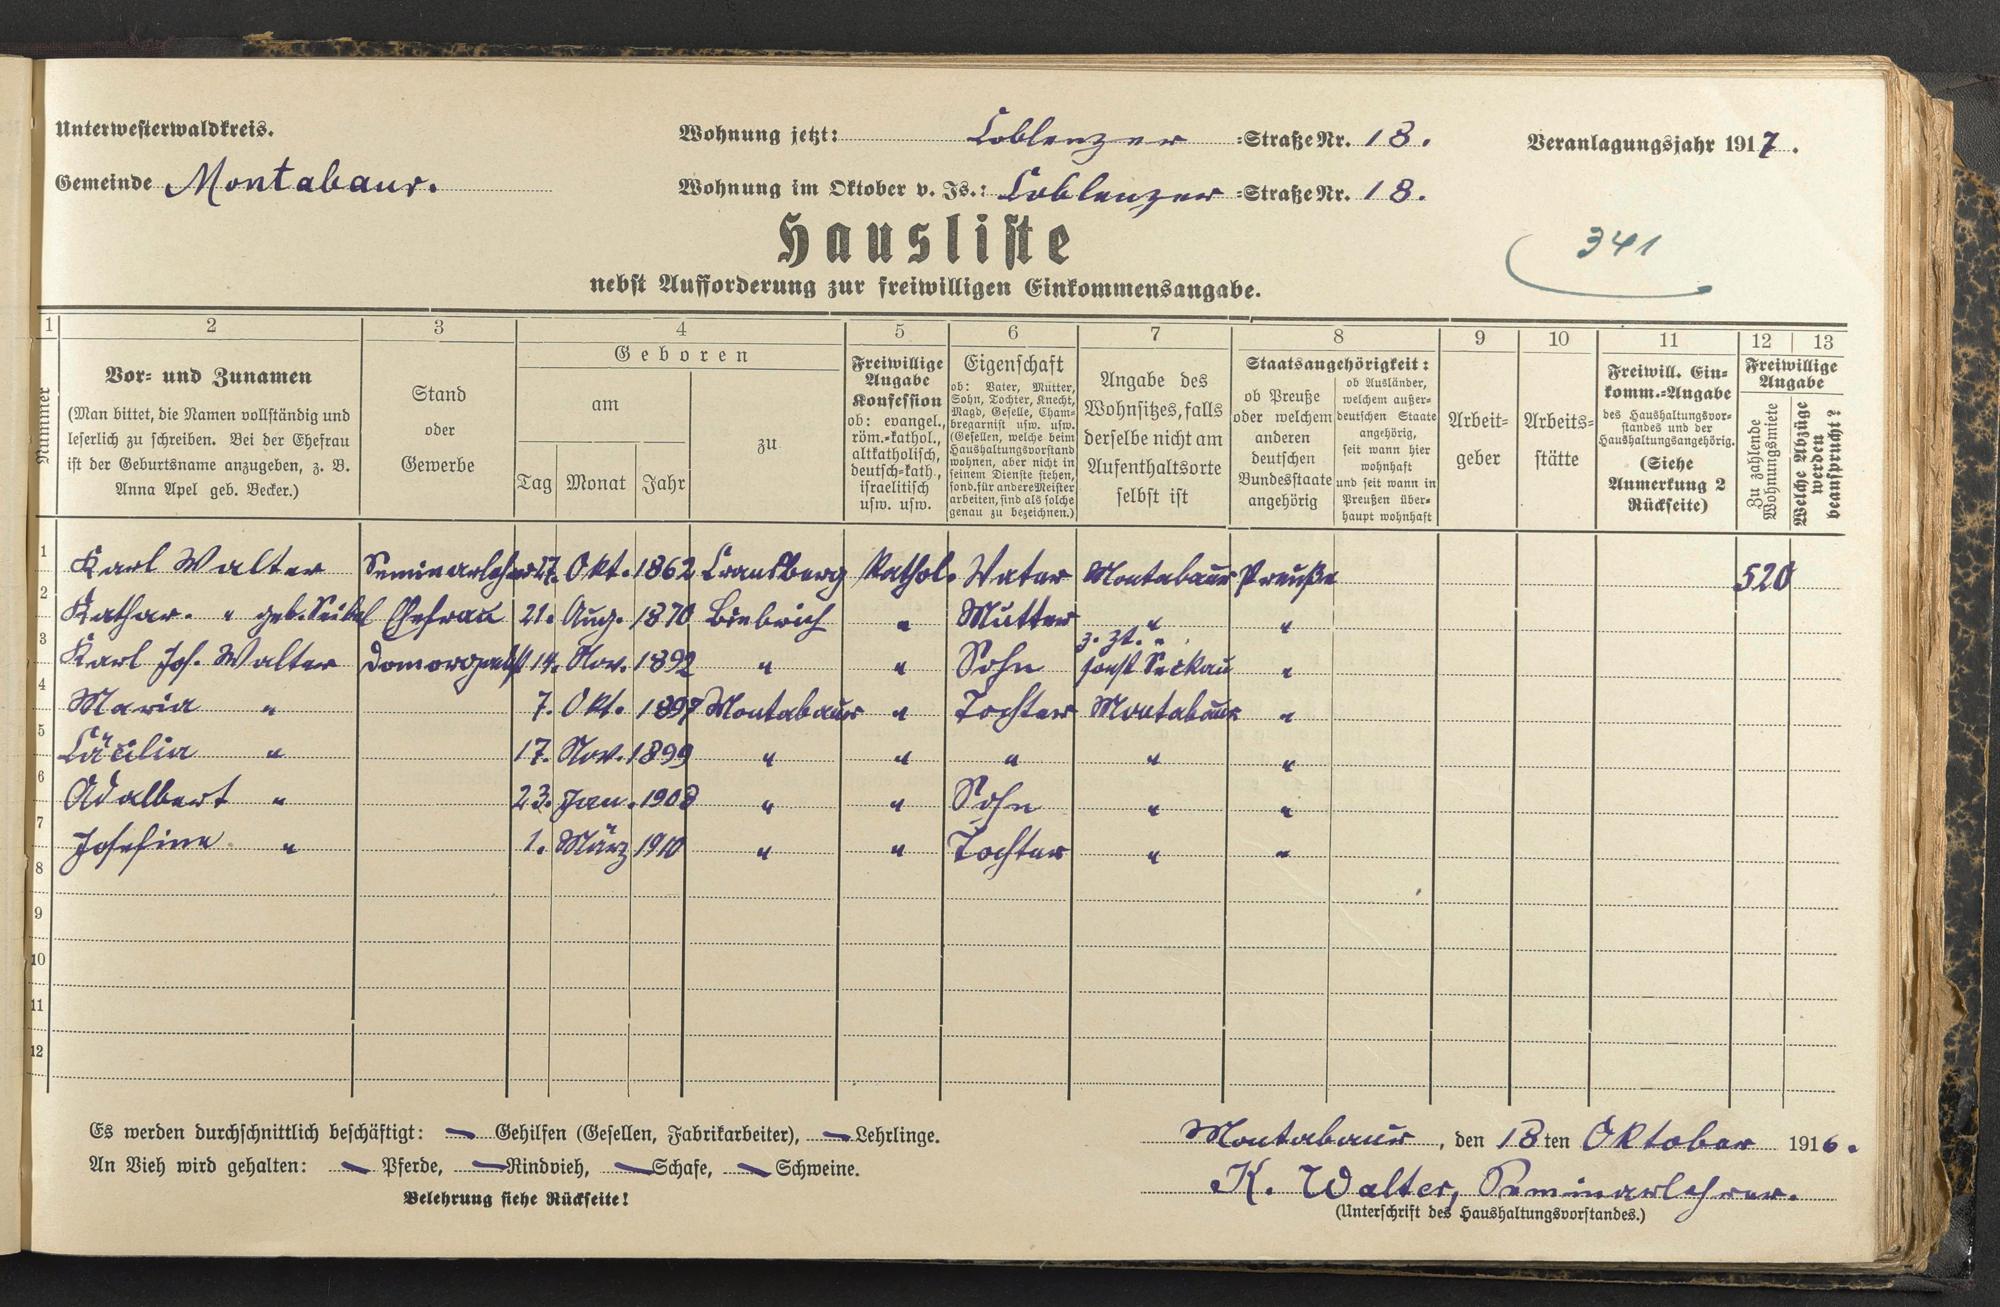 Unterwesterwaldkreis.
Gemeinde Montabaur.
Wohnung jetzt: Coblenzer =Straße Nr. 18.
Wohnung im Oktober v. Js.: Coblenzer =Straße Nr. 18.
Veranlagungsjahr 1917.
Hausliste
nebst Aufforderung zur freiwilligen Einkommensangabe.
341
1 2 3 4 5 6 7 8 9 10 11 12 13
Nummer
Vor- und Zunamen
(Man bittet, die Namen vollständig und
leserlich zu schreiben. Bei der Ehefrau
ist der Geburtsname anzugeben, z. B.
Anna Apel geb. Becker.)
Stand
oder
Gewerbe
Geboren
am
Tag Monat Jahr
zu
Freiwillige
Angabe
Konfession
ob: evangel.,
röm.-kathol.,
altkatholisch,
deutsch-kath.,
israelitisch
usw. usw.
Eigenschaft
ob: Vater, Mutter,
Sohn, Tochter, Knecht,
Magd, Geselle, Cham-
bregarnist usw. usw.
(Gesellen, welche beim
Haushaltungsvorstand
wohnen, aber nicht in
seinem Dienste stehen,
sond. für andere Meister
arbeiten, sind als solche
genau zu bezeichnen.)
Angabe des
Wohnsitzes, falls
derselbe nicht am
Aufenthaltsorte
selbst ist
Staatsangehörigkeit:
ob Preuße
oder welchem
anderen
deutschen
Bundesstaate
angehörig
ob Ausländer,
welchem außer-
deutschen Staate
angehörig,
seit wann hier
wohnhaft
und seit wann in
Preußen über-
haupt wohnhaft
Arbeit-
geber
Arbeits-
stätte
Freiwill. Ein-
komm.-Angabe
des Haushaltungsvor-
standes und der
Haushaltungsangehörig.
(Siehe
Anmerkung 2
Rückseite)
Freiwillige
Angabe
Zu zahlende
Wohnungsmiete
Welche Abzüge
werden
beansprucht?
1 Karl Walter Seminarlehrer 27. Okt. 1862 Cransberg Kathol. Vater Montabaur Preuße 520
2 Kathar. " geb. Seibel Ehefrau 21. Aug. 1870 Biebrich " Mutter " "
3 Karl Jos. Walter Domorganist 14. Nov. 1892 " " Sohn z. Zt. " sonst Seckau "
4 Maria " 7. Okt. 1897 Montabaur " Tochter Montabaur "
5 Cäcilia " 17. Nov. 1899 " " " " "
6 Adalbert " 23. Jan. 1908 " " Sohn " "
7 Josefine " 1. März 1910 " " Tochter " "
8
9
10
11
12
Es werden durchschnittlich beschäftigt: — Gehilfen (Gesellen, Fabrikarbeiter), — Lehrlinge.
An Vieh wird gehalten: — Pferde, — Rindvieh, — Schafe, — Schweine.
Belehrung siehe Rückseite!
Montabaur, den 18ten Oktober 1916.
K. Walter, Seminarlehrer.
(Unterschrift des Haushaltungsvorstandes.)